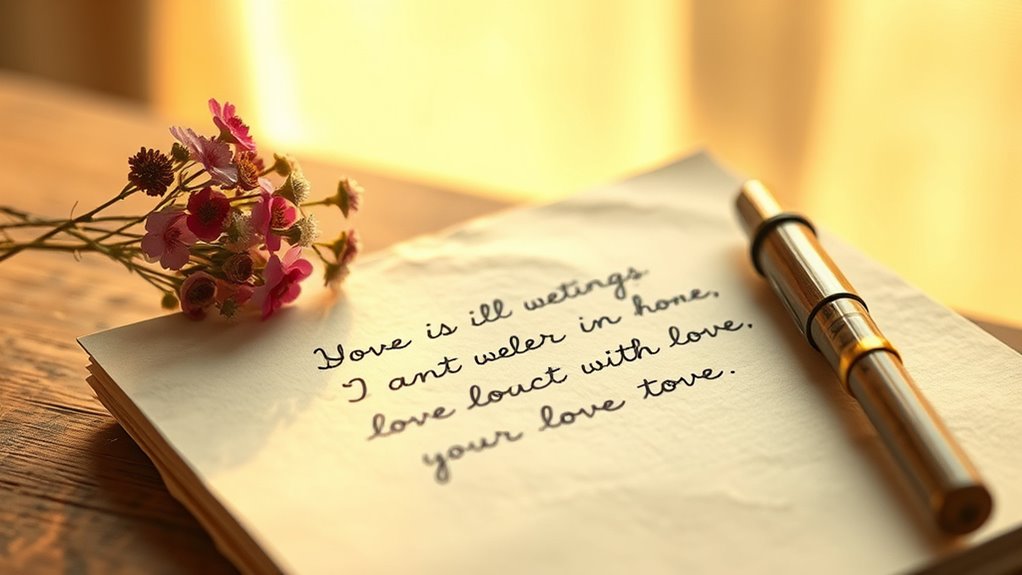 Yove is ill wetings
I ant weler in hone,
love louct with love.
your love tove.